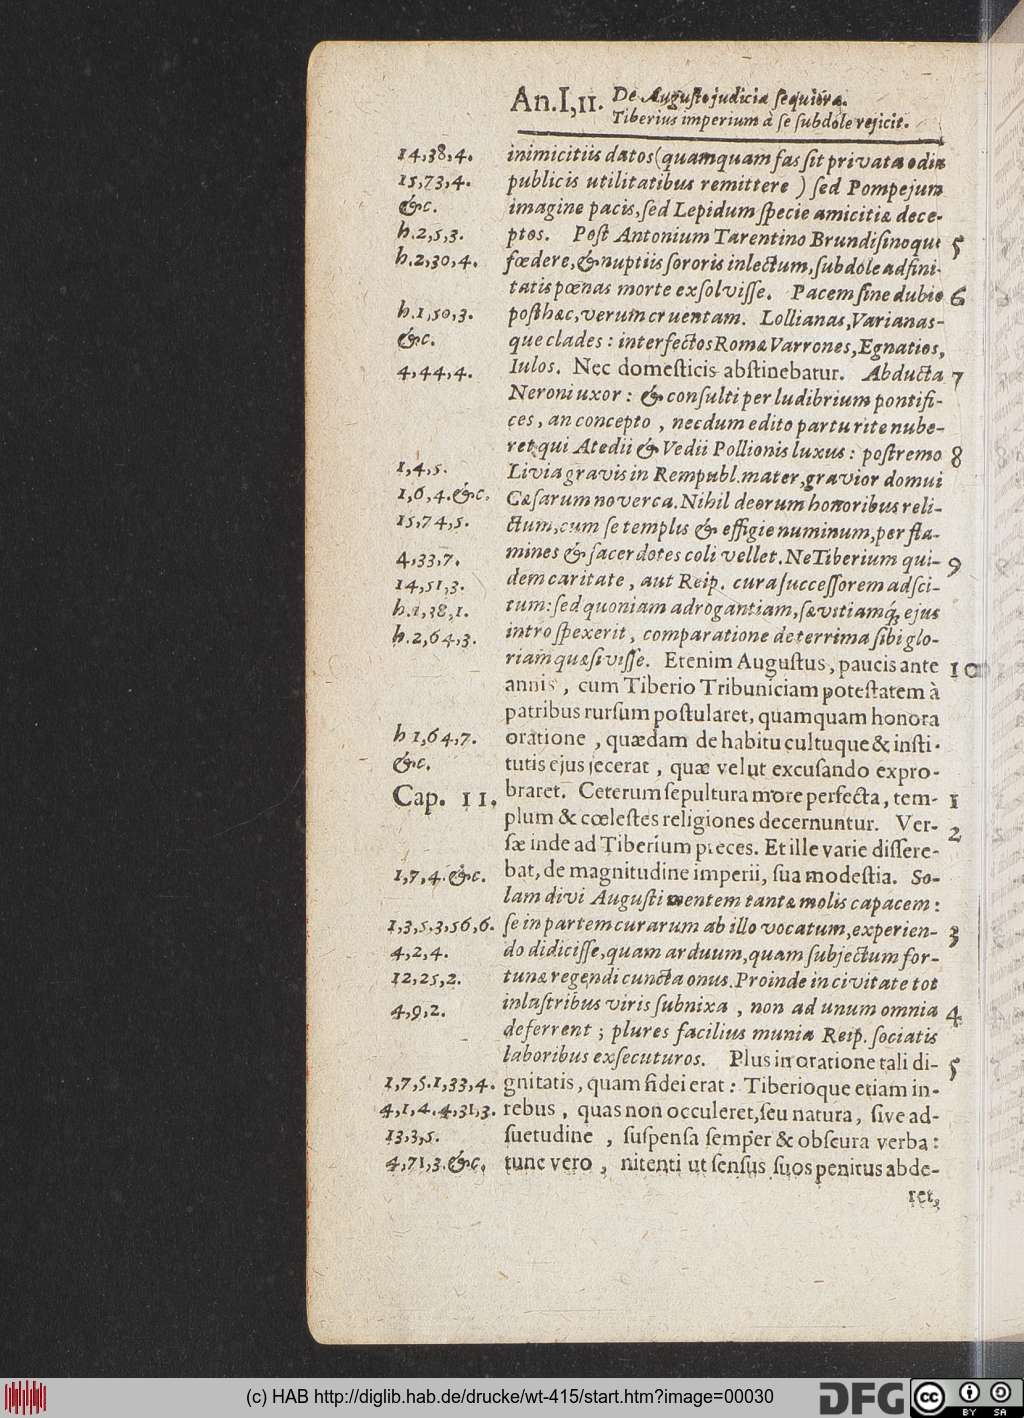 An.I,11. De Augusto judicia sequiora.
Tiberius imperium à se subdole rejicit.
14,38,4. inimicitiis datos (quamquam fas sit privata odia
15,73,4. publicis utilitatibus remittere ) sed Pompejum
&c. imagine pacis, sed Lepidum specie amicitiæ dece-
h.2,5,3. ptos. Post Antonium Tarentino Brundisinoque 5
h.2,30,4. fœdere, & nuptiis sororis inlectum, subdole adfini-
tatis pœnas morte exsolvisse. Pacem sine dubio 6
h.1,50,3. posthæc, verum cruentam. Lollianas, Varianas-
&c. que clades: interfectos Romæ Varrones, Egnatios,
4,44,4. Iulos. Nec domesticis abstinebatur. Abducta 7
Neroni uxor: & consulti per ludibrium pontifi-
ces, an concepto, necdum edito partu rite nube-
ret qui Atedii & Vedii Pollionis luxus: postremo 8
1,4,5. Livia gravis in Rempubl. mater, gravior domui
1,6,4.&c. Cæsarum noverca. Nihil deorum honoribus reli-
15,74,5. ctum, cum se templis & effigie numinum, per fla-
4,33,7. mines & sacerdotes coli vellet. Ne Tiberium qui- 9
14,51,3. dem caritate, aut Reip. cura successorem adsci-
h.1,38,1. tum: sed quoniam adrogantiam, sævitiamq; ejus
h.2,64,3. introspexerit, comparatione deterrima sibi glo-
riam quæsivisse. Etenim Augustus, paucis ante 10
annis, cum Tiberio Tribuniciam potestatem à
patribus rursum postularet, quamquam honora
h 1,64,7. oratione, quædam de habitu cultuque & insti-
&c. tutis ejus jecerat, quæ velut excusando expro-
Cap. 11. braret. Ceterum sepultura more perfecta, tem- 1
plum & cœlestes religiones decernuntur. Ver- 2
sæ inde ad Tiberium preces. Et ille varie dissere-
1,7,4.&c. bat, de magnitudine imperii, sua modestia. So-
lam divi Augusti mentem tantæ molis capacem:
1,3,5.3,56,6. se in partem curarum ab illo vocatum, experien- 3
4,2,4. do didicisse, quam arduum, quam subjectum for-
12,25,2. tunæ regendi cuncta onus. Proinde in civitate tot
4,9,2. inlustribus viris subnixa, non ad unum omnia 4
deferrent; plures facilius munia Reip. sociatis
laboribus exsecuturos. Plus in oratione tali di- 5
1,7,5.1,33,4. gnitatis, quam fidei erat: Tiberioque etiam in-
4,1,4.4,31,3. rebus, quas non occuleret, seu natura, sive ad-
13,3,5. suetudine, suspensa semper & obscura verba:
4,71,3.&c. tunc vero, nitenti ut sensus suos penitus abde-
ret,
(c) HAB http://diglib.hab.de/drucke/wt-415/start.htm?image=00030
DFG
cc BY SA